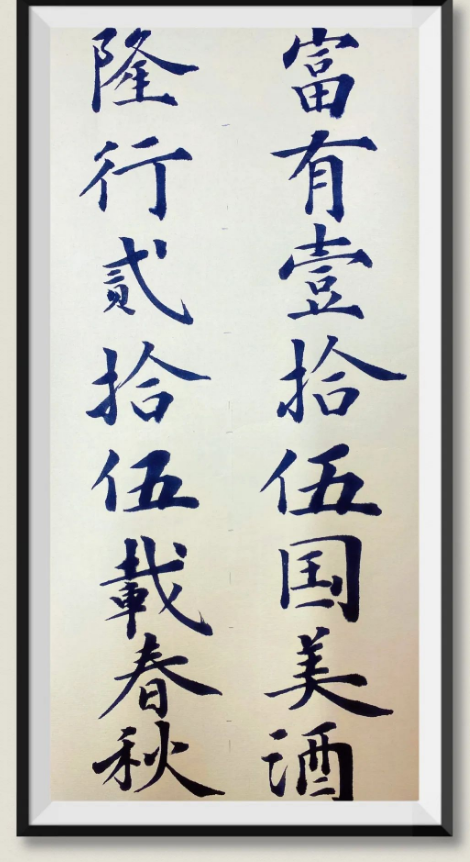 富有壹拾伍国美酒
隆行貳拾伍載春秋